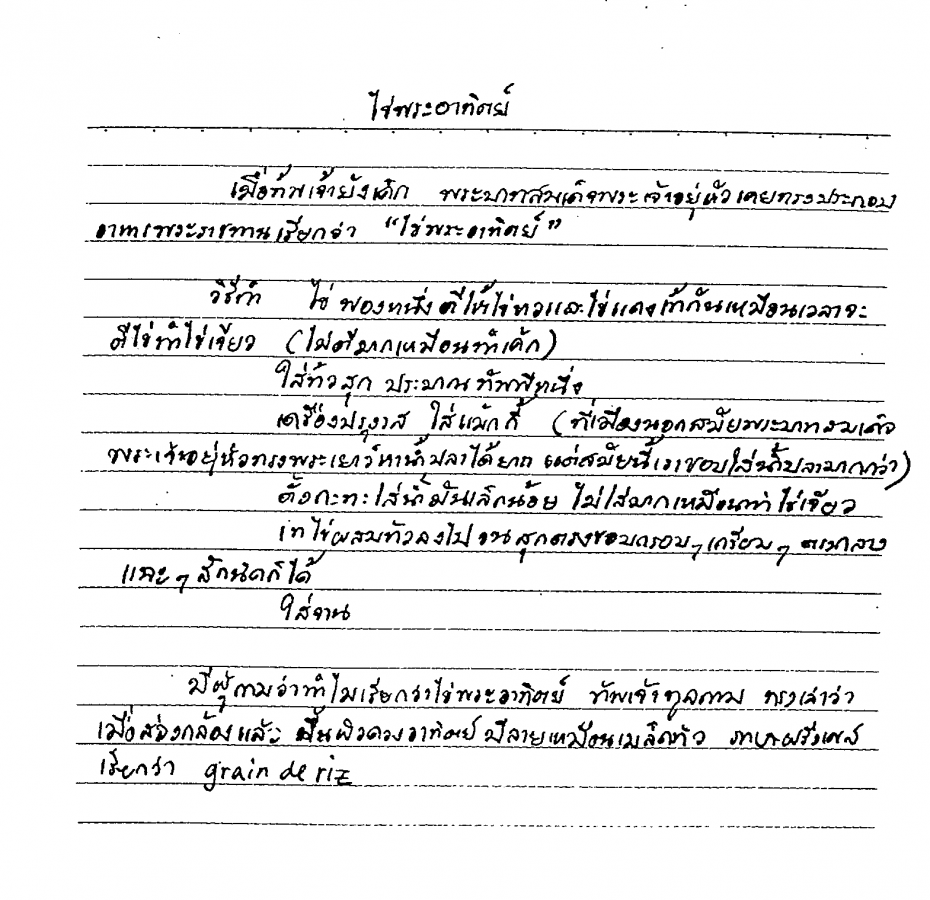 ไข่พระอาทิตย์
เมื่อข้าพเจ้ายังเด็ก พระบาทสมเด็จพระเจ้าอยู่หัวเคยทรงประกอบ
อาหารพระราชทานเรียกว่า "ไข่พระอาทิตย์"
วิธีทำ ไข่ฟองหนึ่ง ตีให้ไข่ขาวและไข่แดงเข้ากันเหมือนเวลาจะ
ตีไข่ทำไข่เจียว (ไม่ตีมากเหมือนทำเค้ก)
ใส่ข้าวสุก ประมาณทัพพีหนึ่ง
เครื่องปรุงรส ใส่แม้กกี้ (ที่เมืองนอกสมัยพระบาทสมเด็จ
พระเจ้าอยู่หัวทรงพระเยาว์หาน้ำปลาได้ยาก แต่สมัยนี้เราชอบใส่น้ำปลามากกว่า)
ตั้งกะทะใส่น้ำมันเล็กน้อย ไม่ใส่มากเหมือนทำไข่เจียว
เทไข่ผสมข้าวลงไป จนสุกตรงขอบกรอบๆ เกรียมๆ ตรงกลาง
แฉะๆ สักนิดก็ได้
ใส่จาน
มีผู้ถามว่าทำไมเรียกว่าไข่พระอาทิตย์ ข้าพเจ้าทูลถาม ทรงเล่าว่า
เมื่อส่องกล้องแล้ว พื้นผิวดวงอาทิตย์มีลายเหมือนเมล็ดข้าว ภาษาฝรั่งเศส
เรียกว่า grain de riz